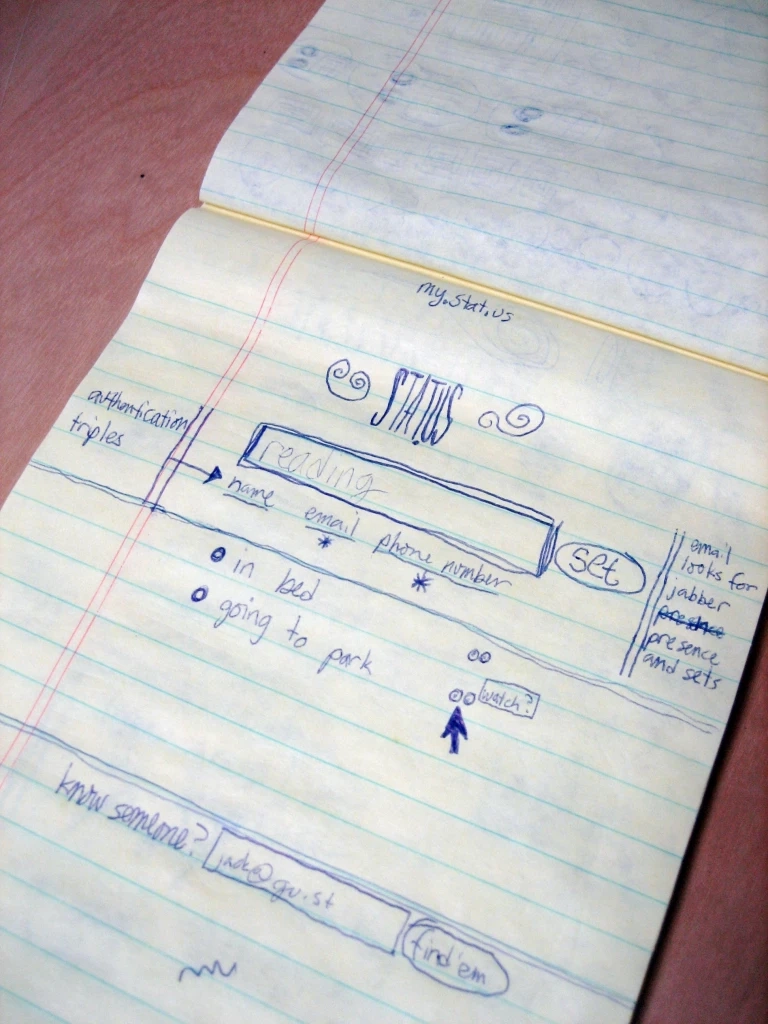 my.stat.us
STAT.US
authentication
triples
reading
set
name
email
phone number
*
*
email
looks for
jabber
presence
presence
and sets
in bed
going to park
watch?
know someone?
jack@gu.st
find'em